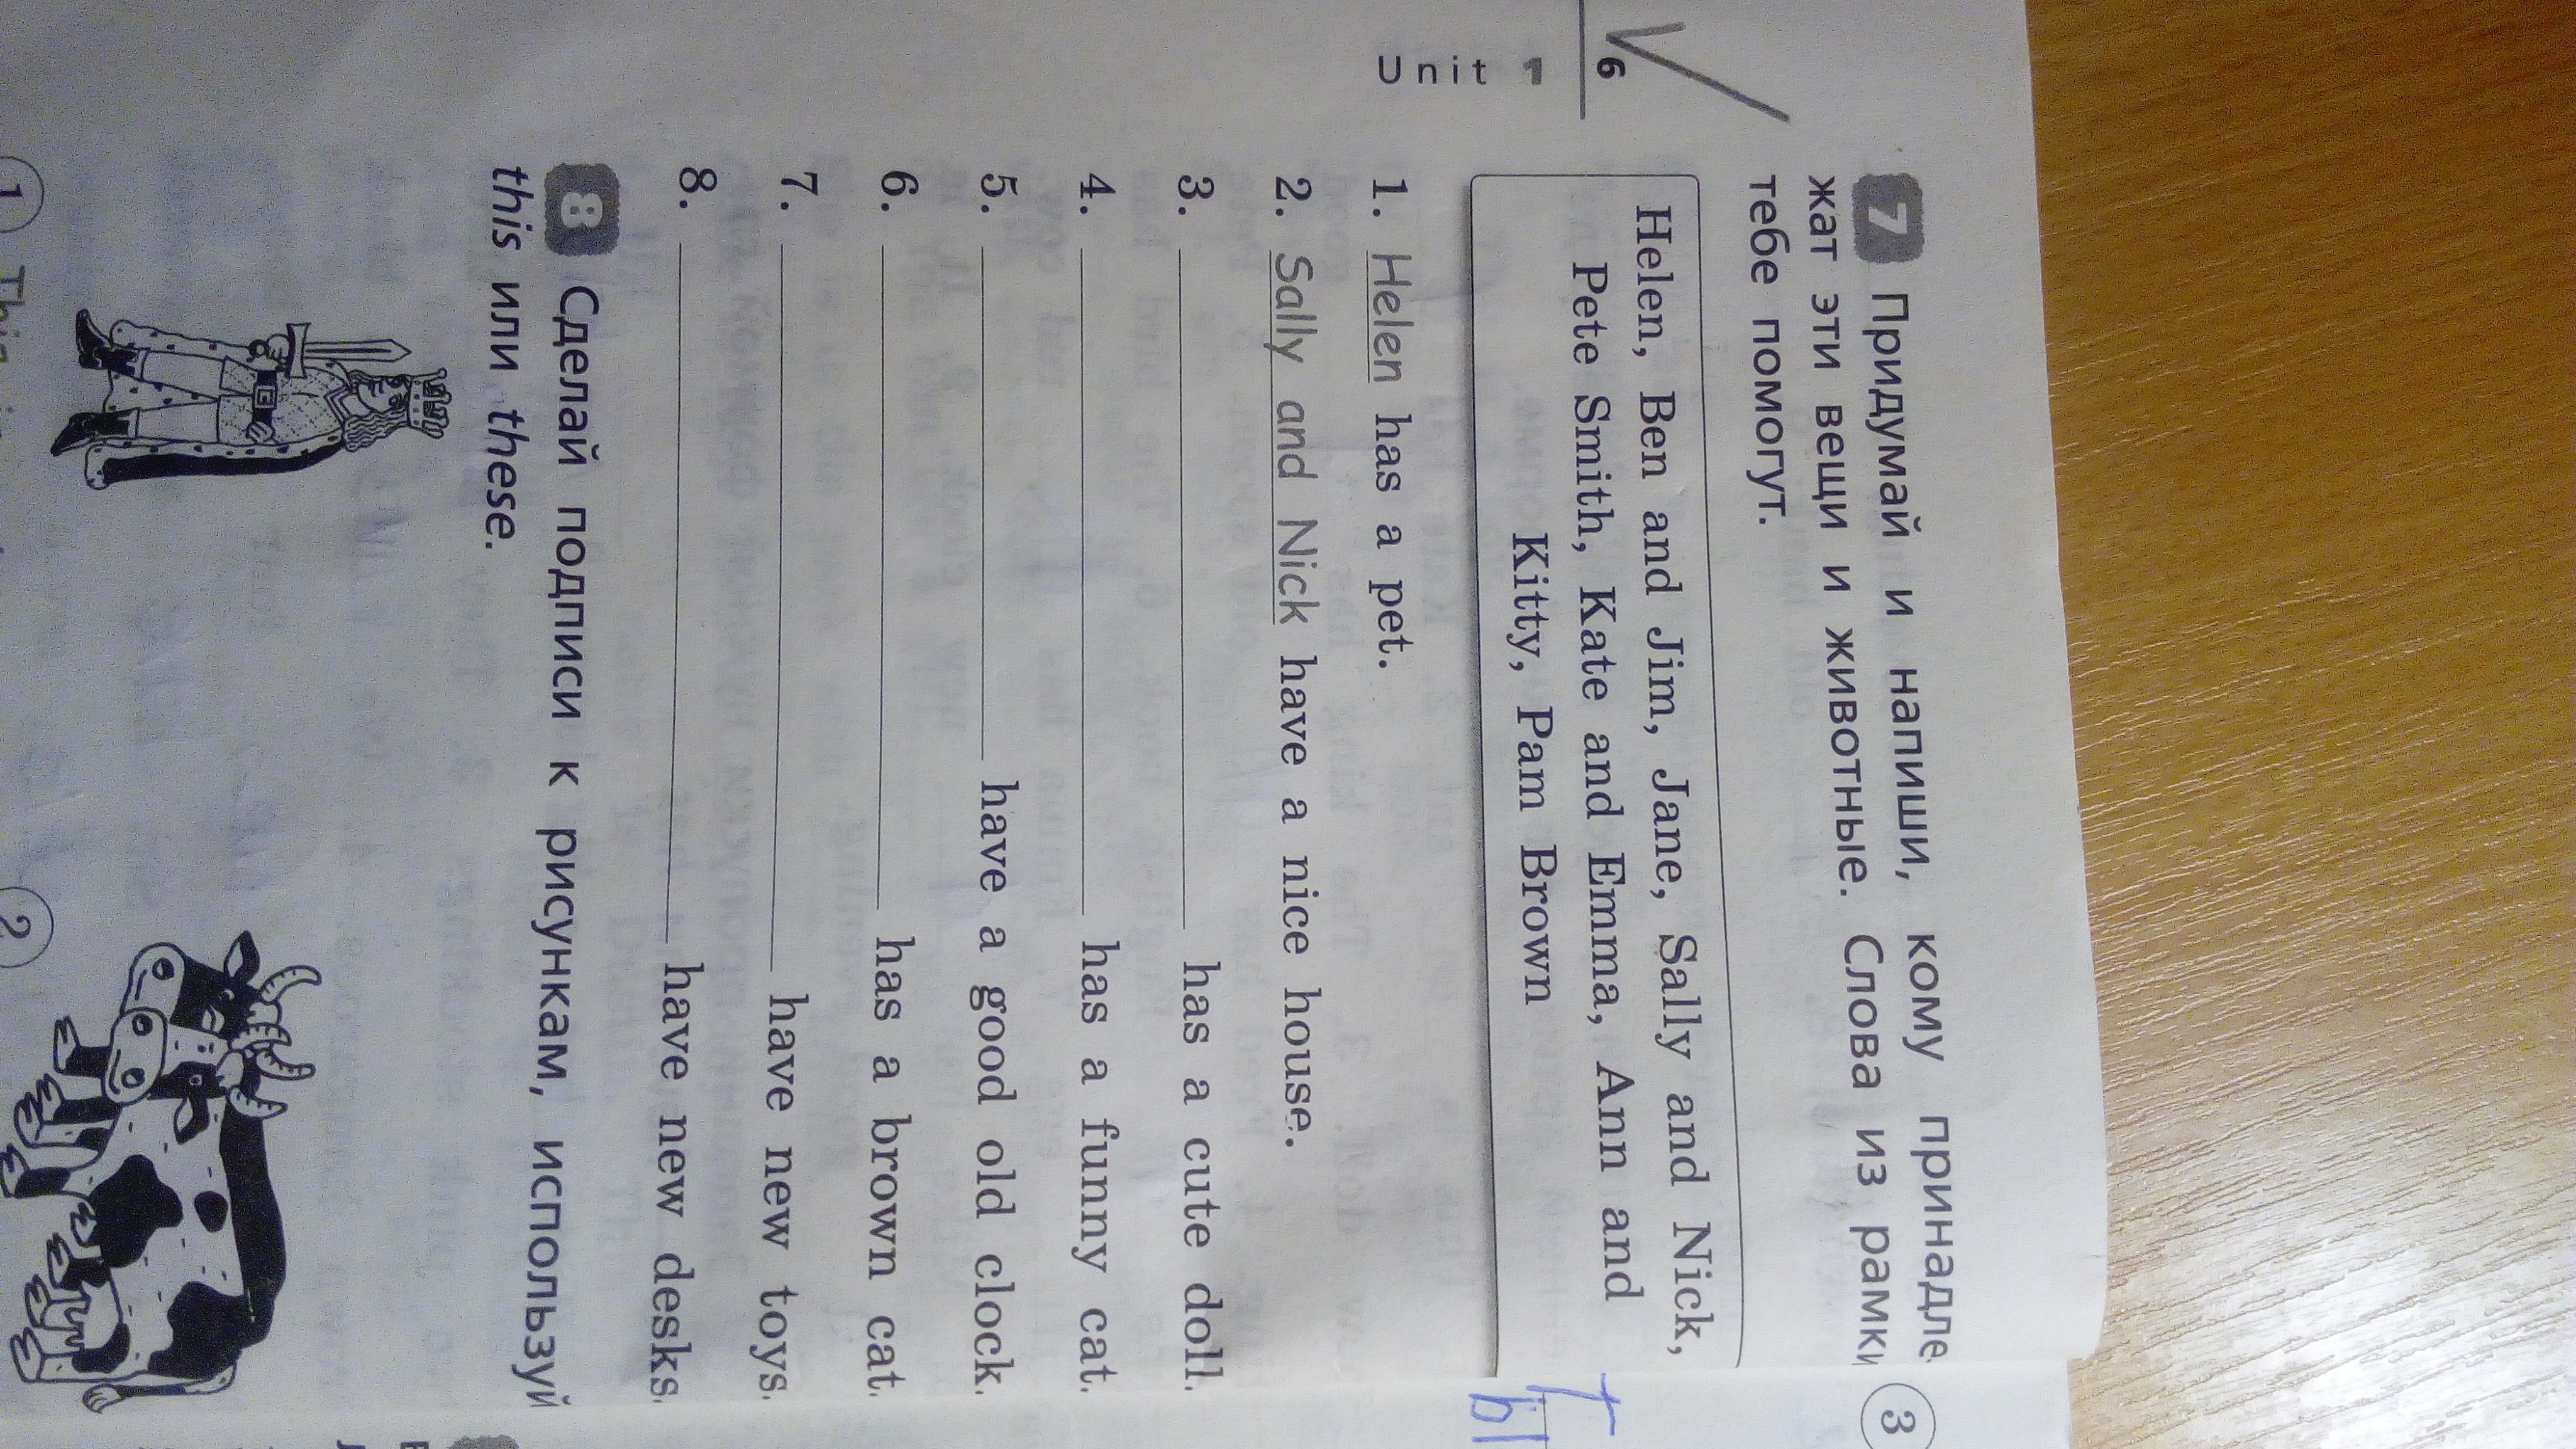 7 Придумай и напиши, кому принадле
жат эти вещи и животные. Слова из рамки
тебе помогут.
Helen, Ben and Jim, Jane, Sally and Nick,
Pete Smith, Kate and Emma, Ann and
Kitty, Pam Brown
1. Helen has a pet.
2. Sally and Nick have a nice house.
3. has a cute doll.
4. has a funny cat.
5. have a good old clock.
6. has a brown cat.
7. have new toys.
8. have new desks.
8 Сделай подписи к рисункам, используй
this или these.
1
This
2
6
Unit 1
3